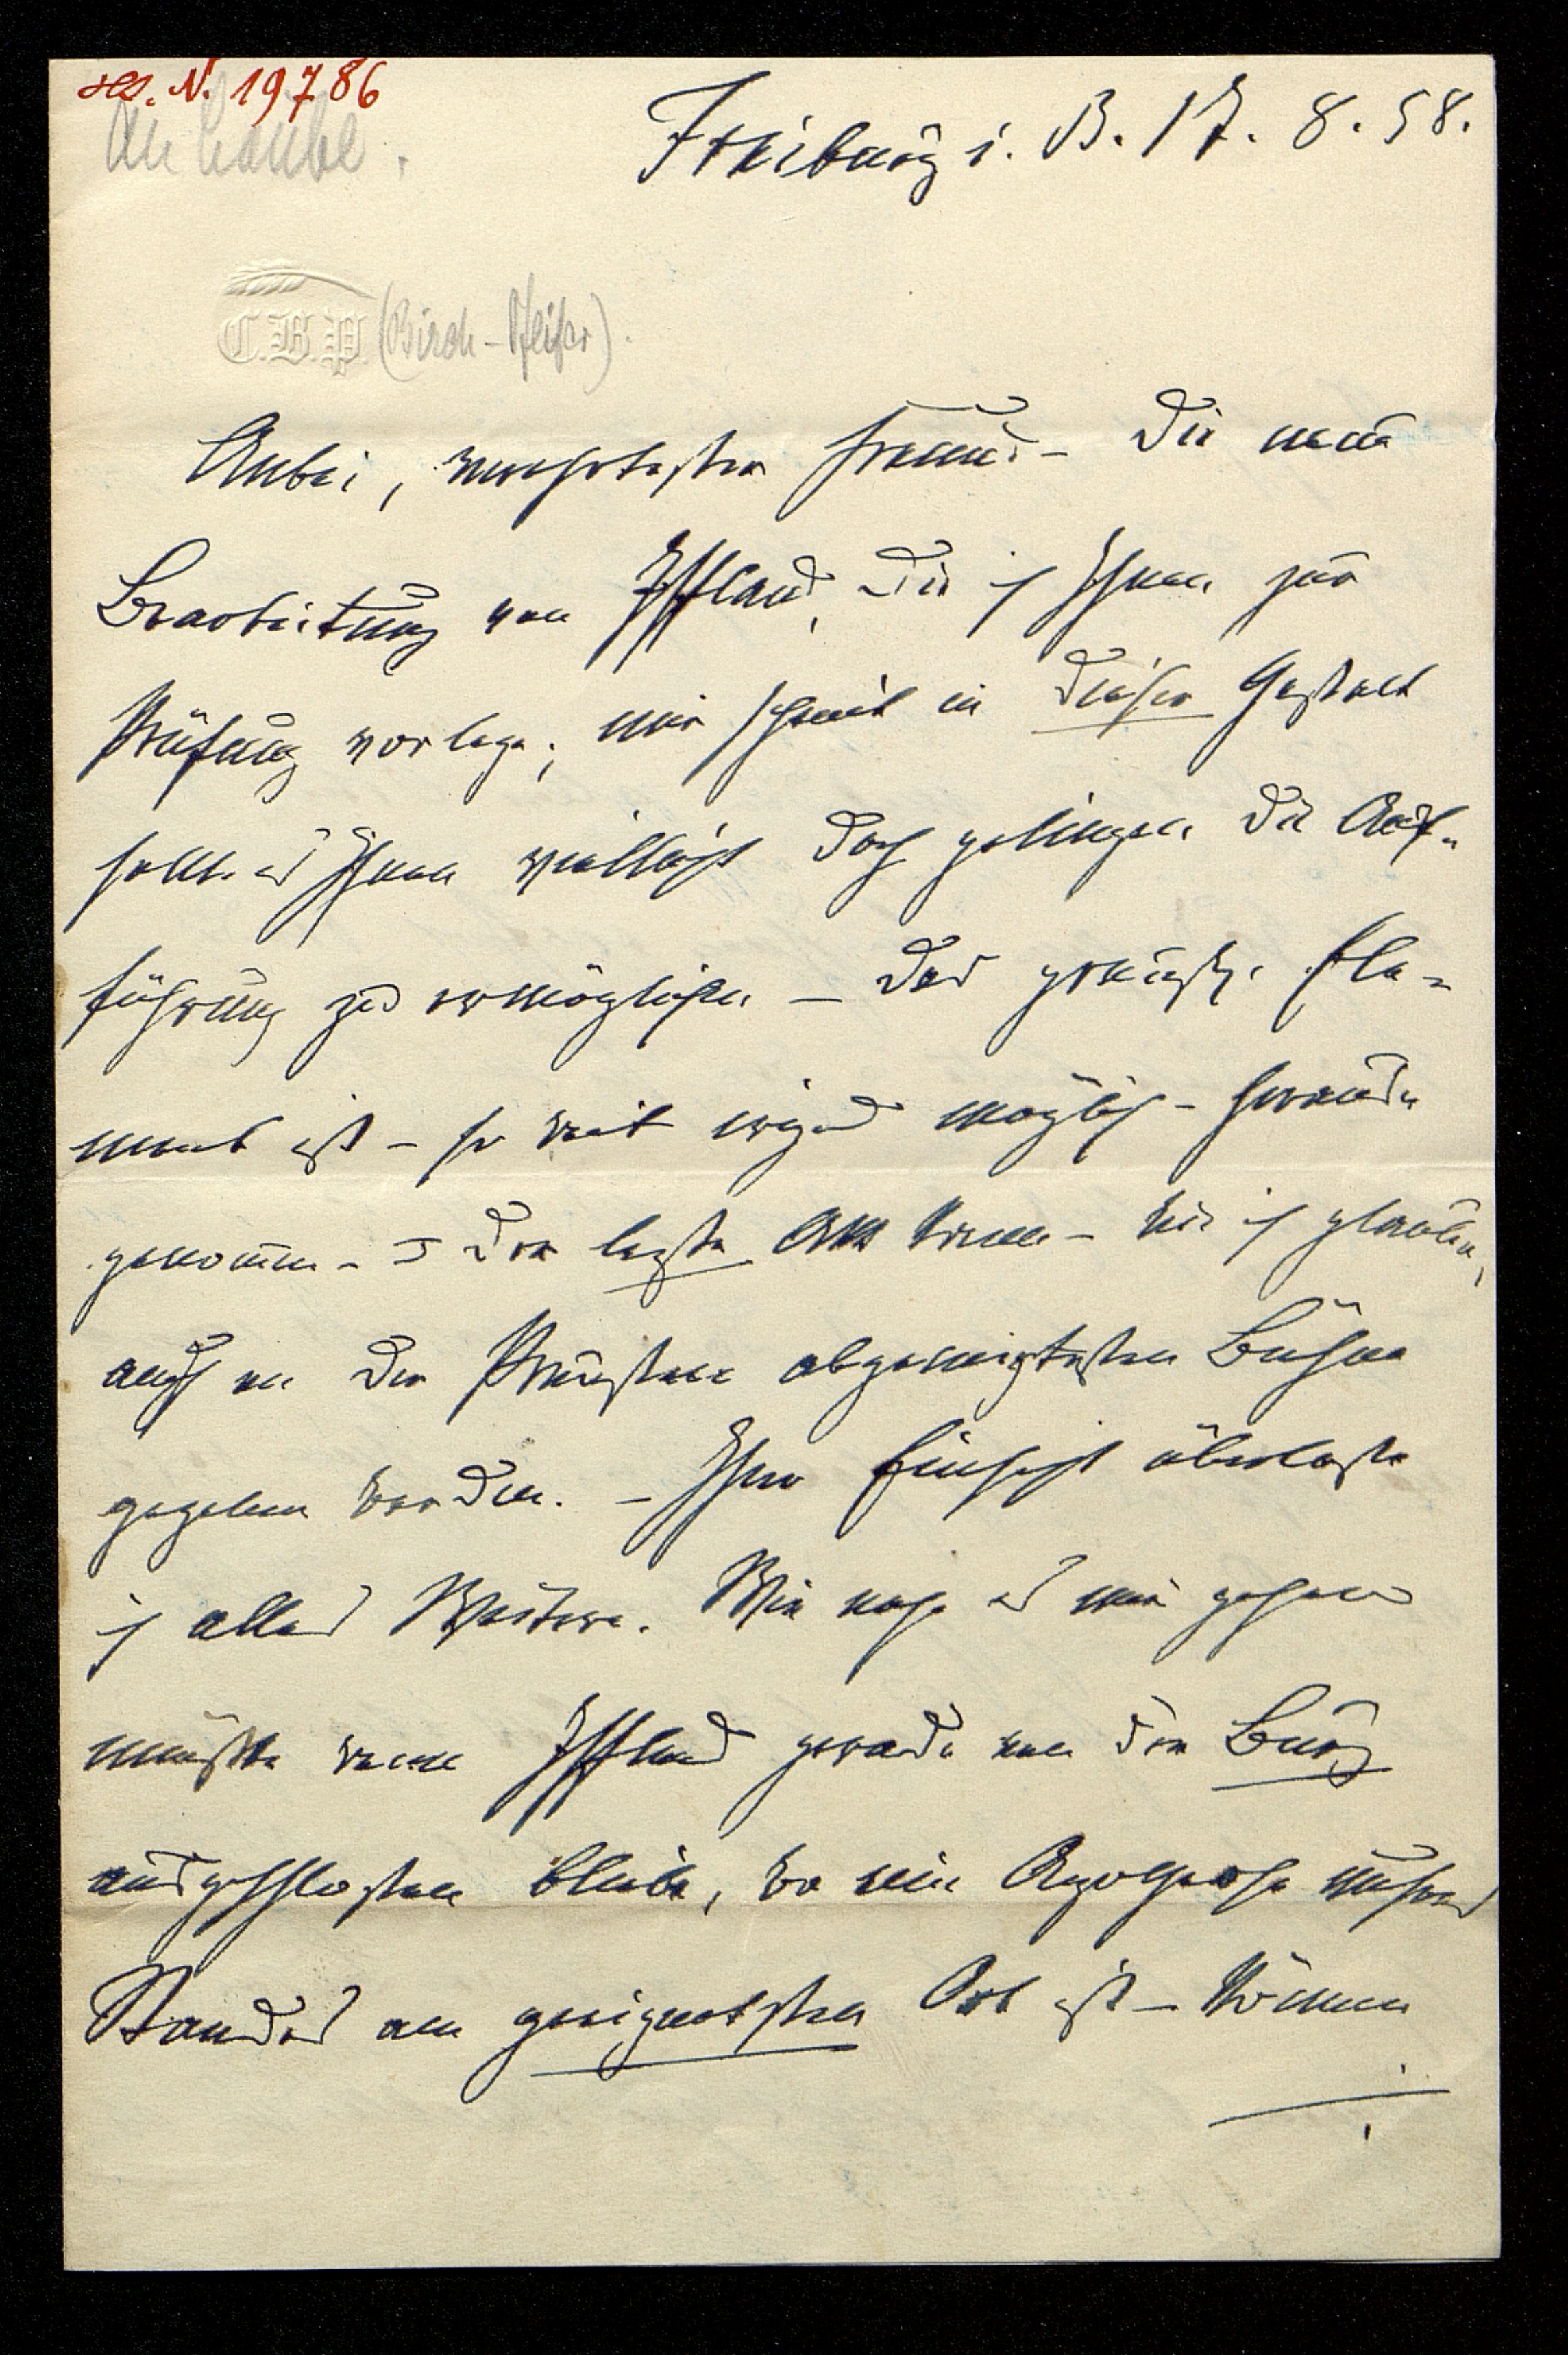 H.S. N. 19786
An Laube.
Freiburg i. B. 17. 8. 58.
C.B.P. (Birch-Pfeifer).
Anbei, verehrtester Freund – die neue
Bearbeitung von Iffland, die ich Ihnen zur
Prüfung vorlege; mir scheint in dieser Gestalt
sollte es Ihnen vielleicht doch gelingen die Auf-
führung zu ermöglichen – das preußische Ele-
ment ist – so weit irgend möglich – heraus
genommen – der letzte Akt kann – wie ich glaube,
auch an den Preußen abgeneigtesten Bühnen
gegeben werden. – Ihrer Einsicht überlasse
ich alles Weitere. Wie nahe es mir gehen
müßte wenn Iffland gerade von der Burg
ausgeschlossen bliebe, wo eine Apotheose unseres
Standes am geeignetsten Ort ist – können